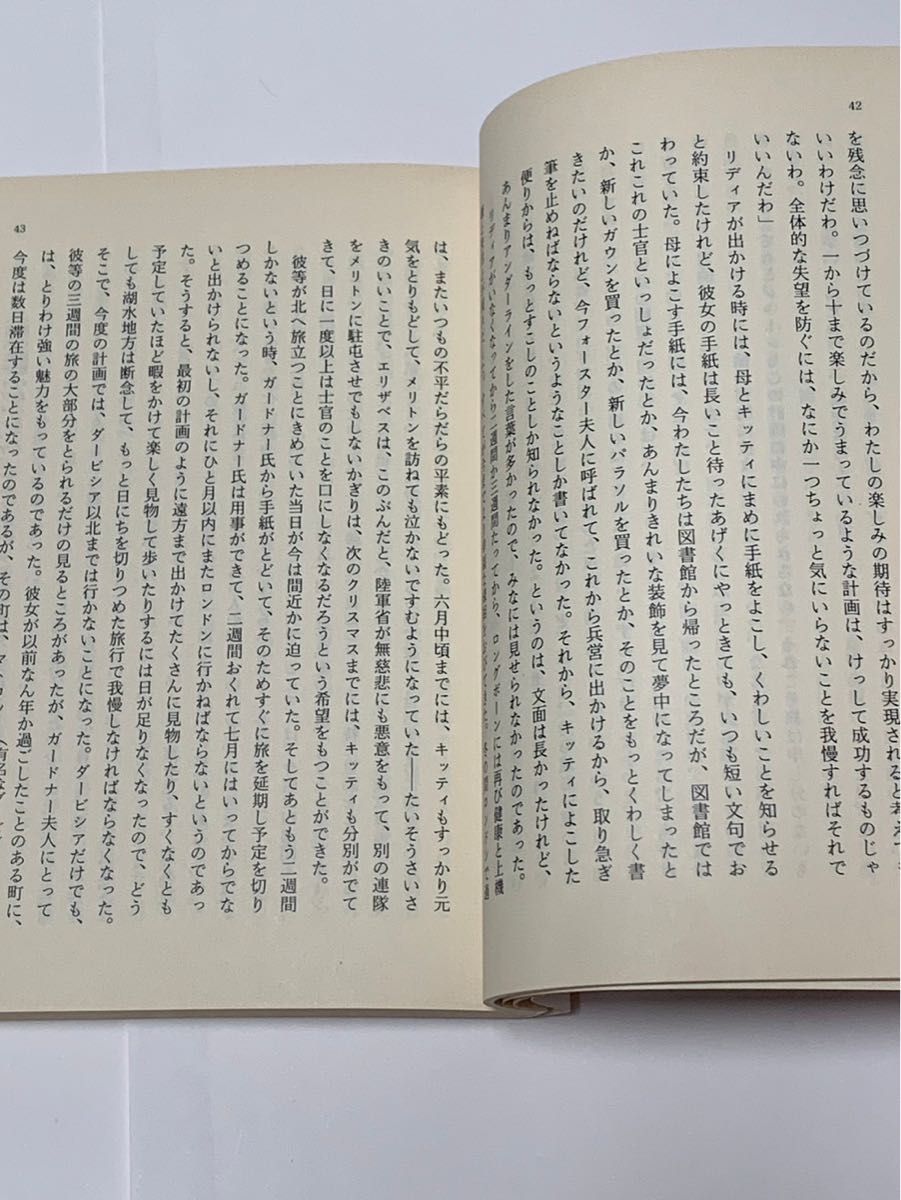 42
を残念に思いつづけているのだから、わたしの楽しみの期待はすっかり実現されると考えて
いいわけだわ。一から十まで楽しみでうまっているような計画は、けっして成功するものじゃ
ないわ。全体的な失望を防ぐには、なにか一つちょっと気にいらないことを我慢すればそれで
いいんだわ」
リディアが出かける時には、母とキッティにまめに手紙をよこし、くわしいことを知らせる
と約束したけれど、彼女の手紙は長いこと待ったあげくにやっときても、いつも短い文句でお
わっていた。母によこす手紙には、今わたしたちは図書館から帰ったところだが、図書館では
これこれの士官といっしょだったとか、あんまりきれいな装飾を見て夢中になってしまったと
か、新しいガウンを買ったとか、新しいパラソルを買ったとか、そのことをもっとくわしく書
きたいのだけれど、今フォースター夫人に呼ばれて、これから兵営に出かけるから、取り急ぎ
筆を止めねばならないというようなことしか書いてなかった。それから、キッティによこした
便りからは、もっとすこしのことしか知られなかった。というのは、文面は長かったけれど、
あんまりアンダーラインをした言葉が多かったので、みなには見せられなかったのであった。
リディアがいなくなってから二週間か三週間たってから、ロングボーンには再び健康と上機
43
は、またいつもの不平だらだらの平素にもどった。六月中頃までには、キッティもすっかり元
気をとりもどして、メリトンを訪ねても泣かないですむようになっていた――たいそうさいさ
きのいいことで、エリザベスは、このぶんだと、陸軍省が無慈悲にも悪意をもって、別の連隊
をメリトンに駐屯させでもしないかぎりは、次のクリスマスまでには、キッティも分別がでて
きて、日に一度以上は士官のことを口にしなくなるだろうという希望をもつことができた。
彼等が北へ旅立つことにきめていた当日が今は間近かに迫っていた。そしてあともう二週間
しかないという時、ガードナー氏から手紙がとどいて、そのためすぐに旅を延期し予定を切り
つめることになった。ガードナー氏は用事ができて、二週間おくれて七月にはいってからでな
いと出かけられないし、それにひと月以内にまたロンドンに行かねばならないというのであっ
た。そうすると、最初の計画のように遠方まで出かけてたくさんに見物したり、すくなくとも
予定していたほど暇をかけて楽しく見物して歩いたりするには日が足りなくなったので、どう
しても湖水地方は断念して、もっと日にちを切りつめた旅行で我慢しなければならなくなった。
そこで、今度の計画では、ダービシア以北までは行かないことになった。ダービシアだけでも、
彼等の三週間の旅の大部分をとられるだけの見るところがあったが、ガードナー夫人にとって
は、とりわけ強い魅力をもっているのであった。彼女が以前なん年か過ごしたことのある町に、
今度は数日滞在することになったのであるが、その町は、